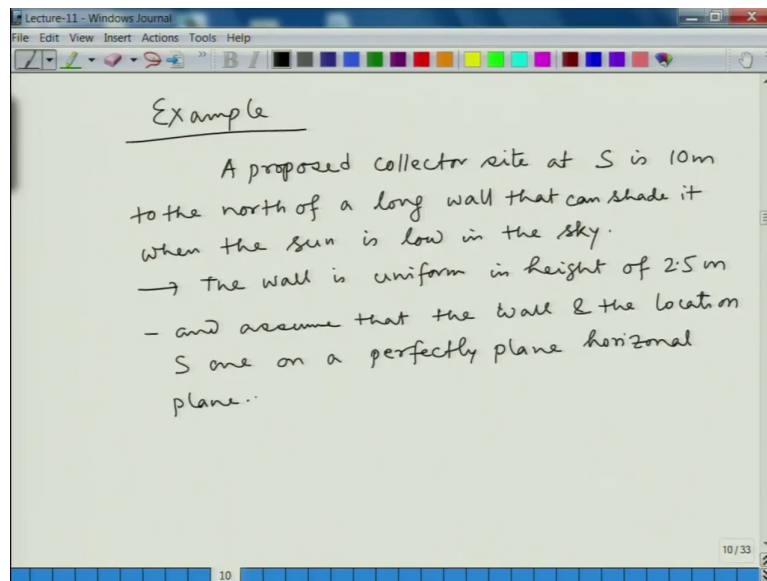 Lecture-11 - Windows Journal
File Edit View Insert Actions Tools Help
Example
A proposed collector site at S is 10m
to the north of a long wall that can shade it
when the sun is low in the sky.
→ The wall is uniform in height of 2.5 m
- and assume that the wall & the location
S are on a perfectly plane horizonal
plane..
10/33
10